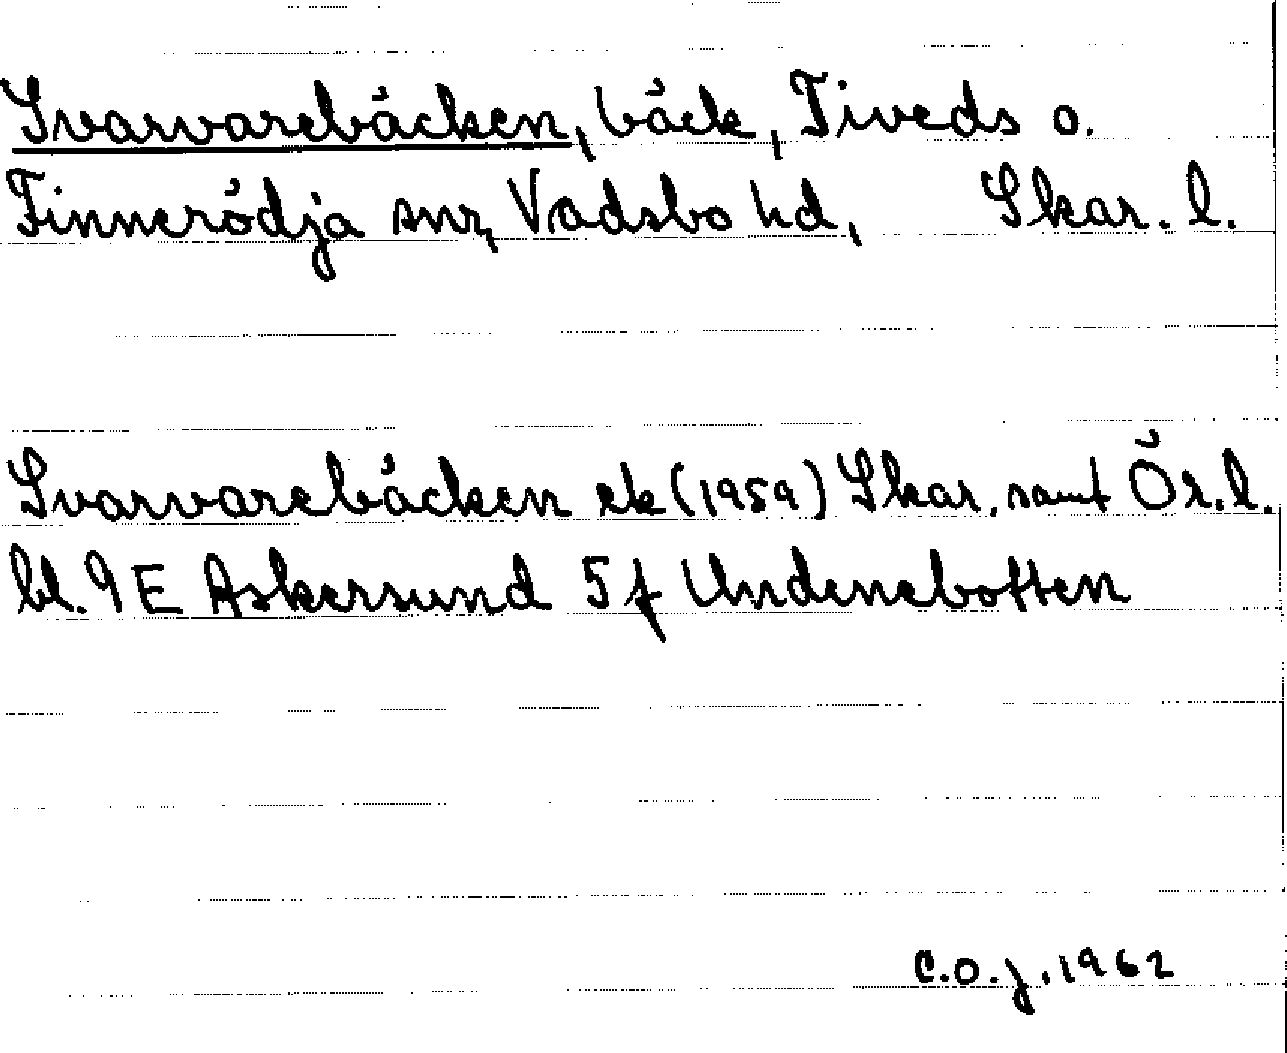 Svarvarebäcken, bäck, Tiveds o.
Finnerödja snr, Vadsbo hd, Skar. l.
Svarvarebäcken ek (1959) Skar. samt Ör. l.
bl. 9 E Askersund 5 f Undenebotten
C.O.J. 1962